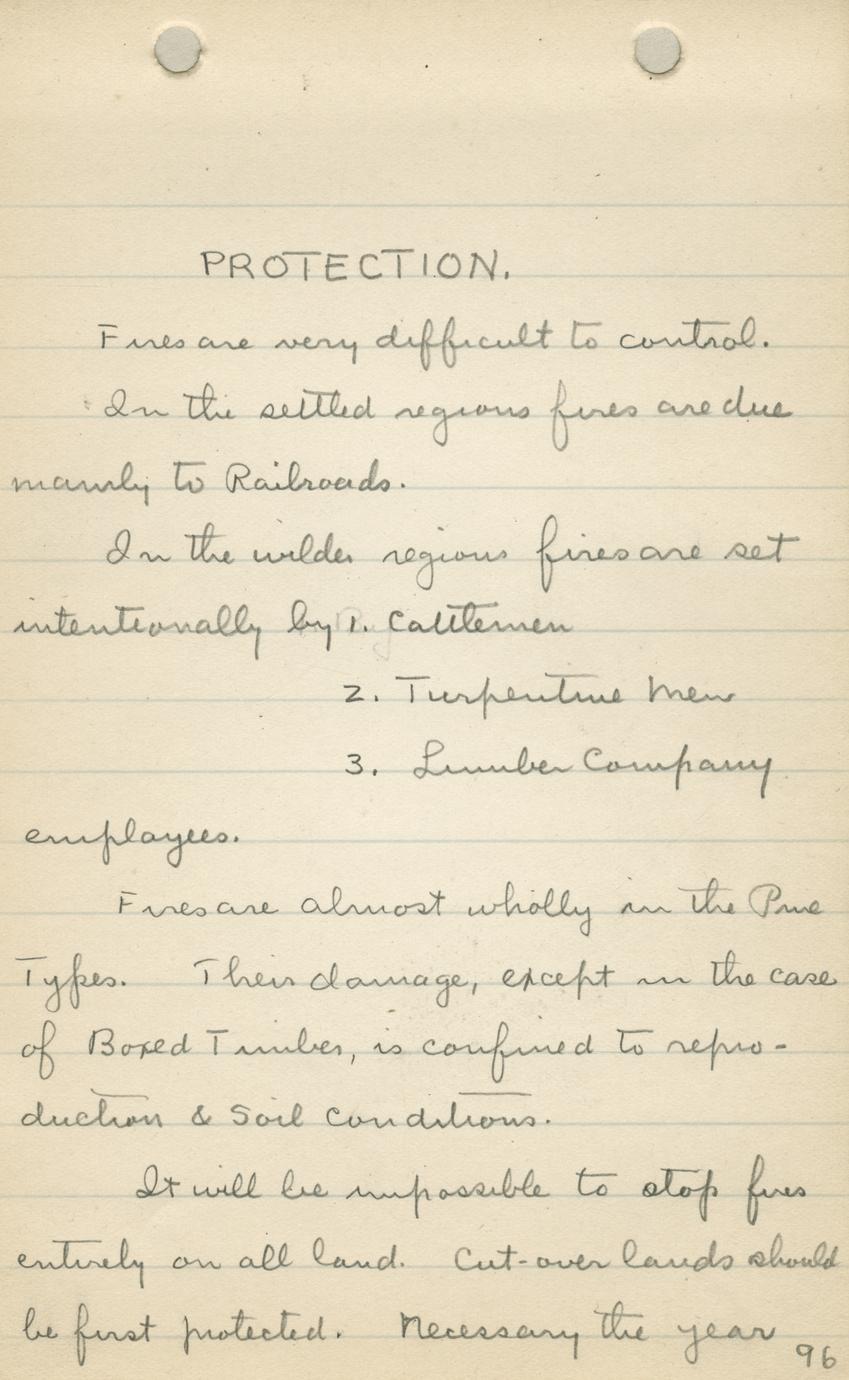 PROTECTION.
Fires are very difficult to control.
In the settled regions fires are due
mainly to Railroads.
In the wilder regions fires are set
intentionally by 1. Cattlemen
2. Turpentine Men
3. Lumber Company
employees.
Fires are almost wholly in the Pine
Types. Their damage, except in the case
of Boxed Timber, is confined to repro-
duction & Soil Conditions.
It will be impossible to stop fires
entirely on all land. Cut-over lands should
be first protected. Necessary the year
96